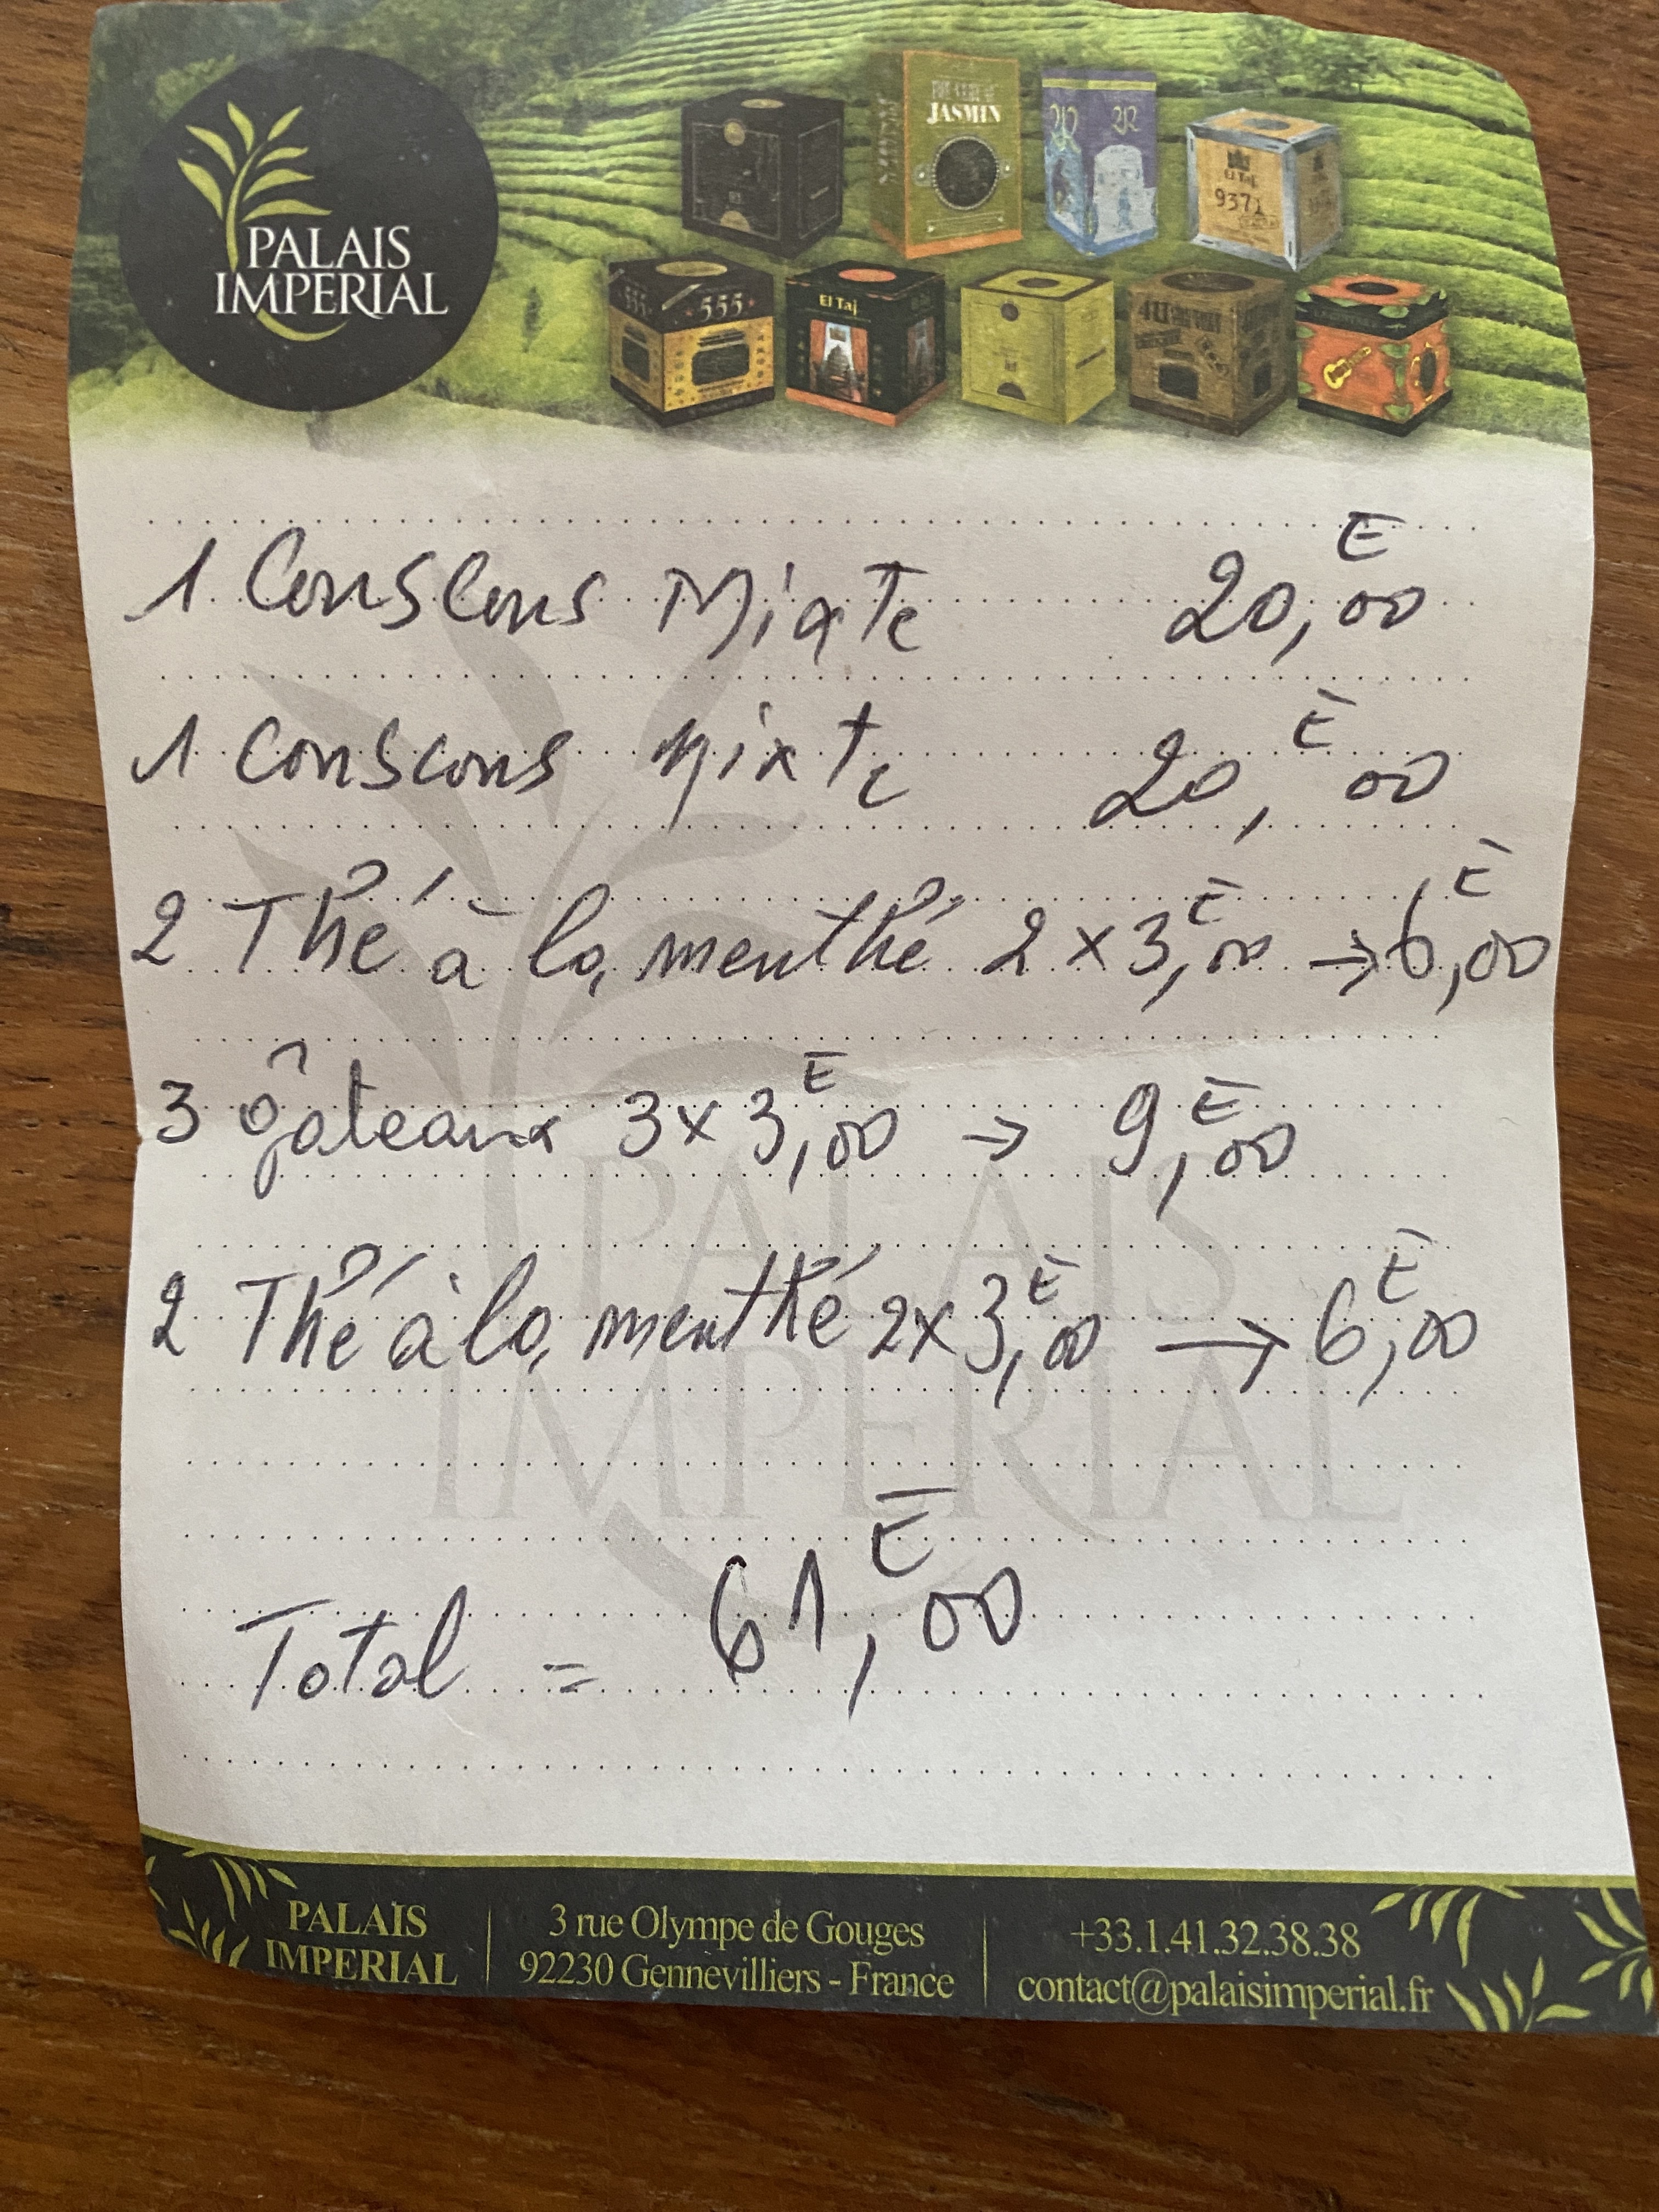 PALAIS
IMPERIAL
JASMIN
El Taj
9371
555
555
El Taj
1 Couscous Mixte 20,00 E
1 couscous mixte 20,00 E
2 Thé à la menthé 2 x 3,00 E → 6,00 E
3 gâteaux 3 x 3,00 E → 9,00 E
2 Thé à la menthé 2 x 3,00 E → 6,00 E
Total = 61,00 E
PALAIS
IMPERIAL
PALAIS
IMPERIAL
3 rue Olympe de Gouges
92230 Gennevilliers - France
+33.1.41.32.38.38
contact@palaisimperial.fr